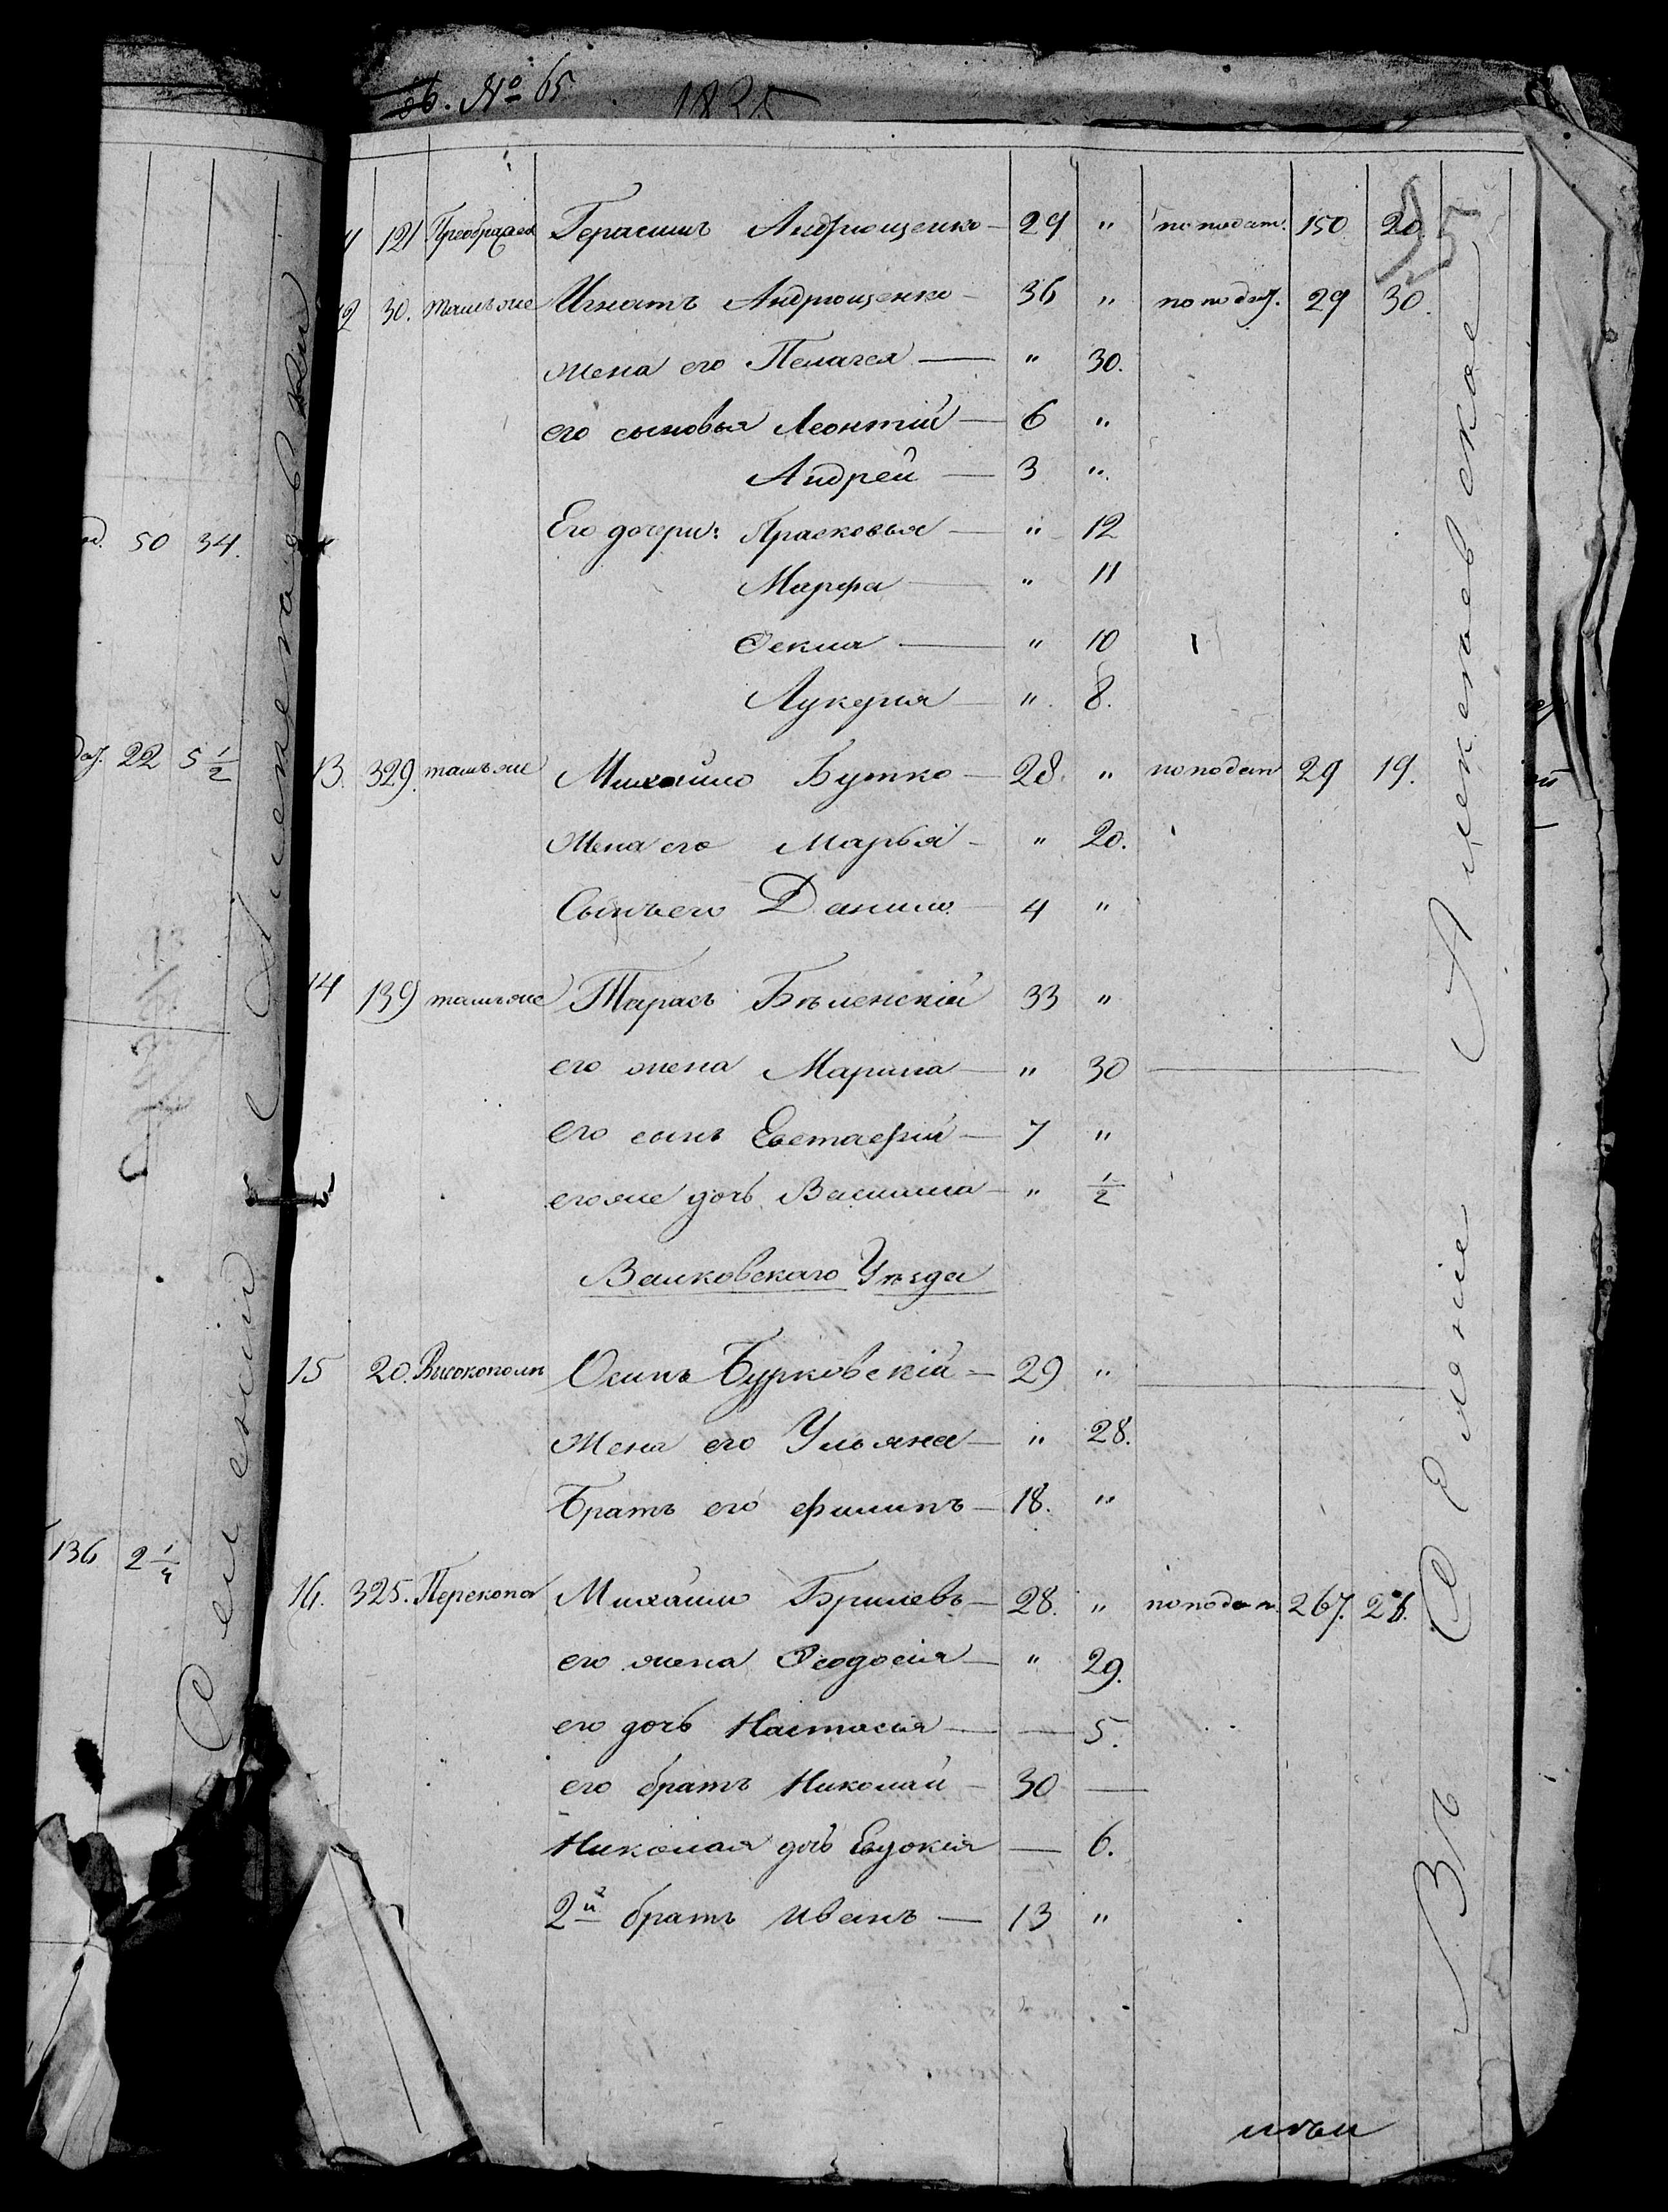 № 65
1835
50 34.
22 5 1/2
136 2 1/4
121 Герасимъ Андрющенко — 29 " по подат. 150 20
12 30. тамъ же Игнатъ Андрющенко — 36 " по подат. 29 30.
жена его Пелагея — " 30.
его сыновья Леонтій — 6 "
Андрей — 3 "
Его дочери: Прасковья — " 12
Марфа — " 11
Фекла — " 10
Лукерья — " 8.
13. 329. тамъ же Михайло Бутко — 28 " по подат 29 19.
Жена его Марья — " 20.
Сынъ его Данило — 4 "
14 139 тамъ же Тарасъ Бѣленскій 33 "
его жена Марина — " 30
его сынъ Евстафій — 7 "
его же дочь Василиса — " 1/2
Валковскаго Уѣзда
15 20. Высокополь Осипъ Бурковскій — 29 "
Жена его Ульяна — " 28.
Братъ его Филипъ — 18. "
16. 325. Перекопа Михайло Брилевъ — 28. " по подат. 267.
его жена Феодосія — " 29.
его дочь Настасія — — 5.
его братъ Николай — 30 —
Николая дочь Евдокія — 6.
2й братъ Иванъ — 13 "
Въ Селеніе Алексеевское